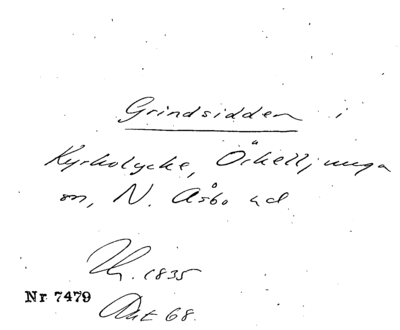 Grindsidden i
Kyrkolycke, Örkelljunga
sn, N. Åsbo hd
Th. 1835
Nr 7479
Akt 68.